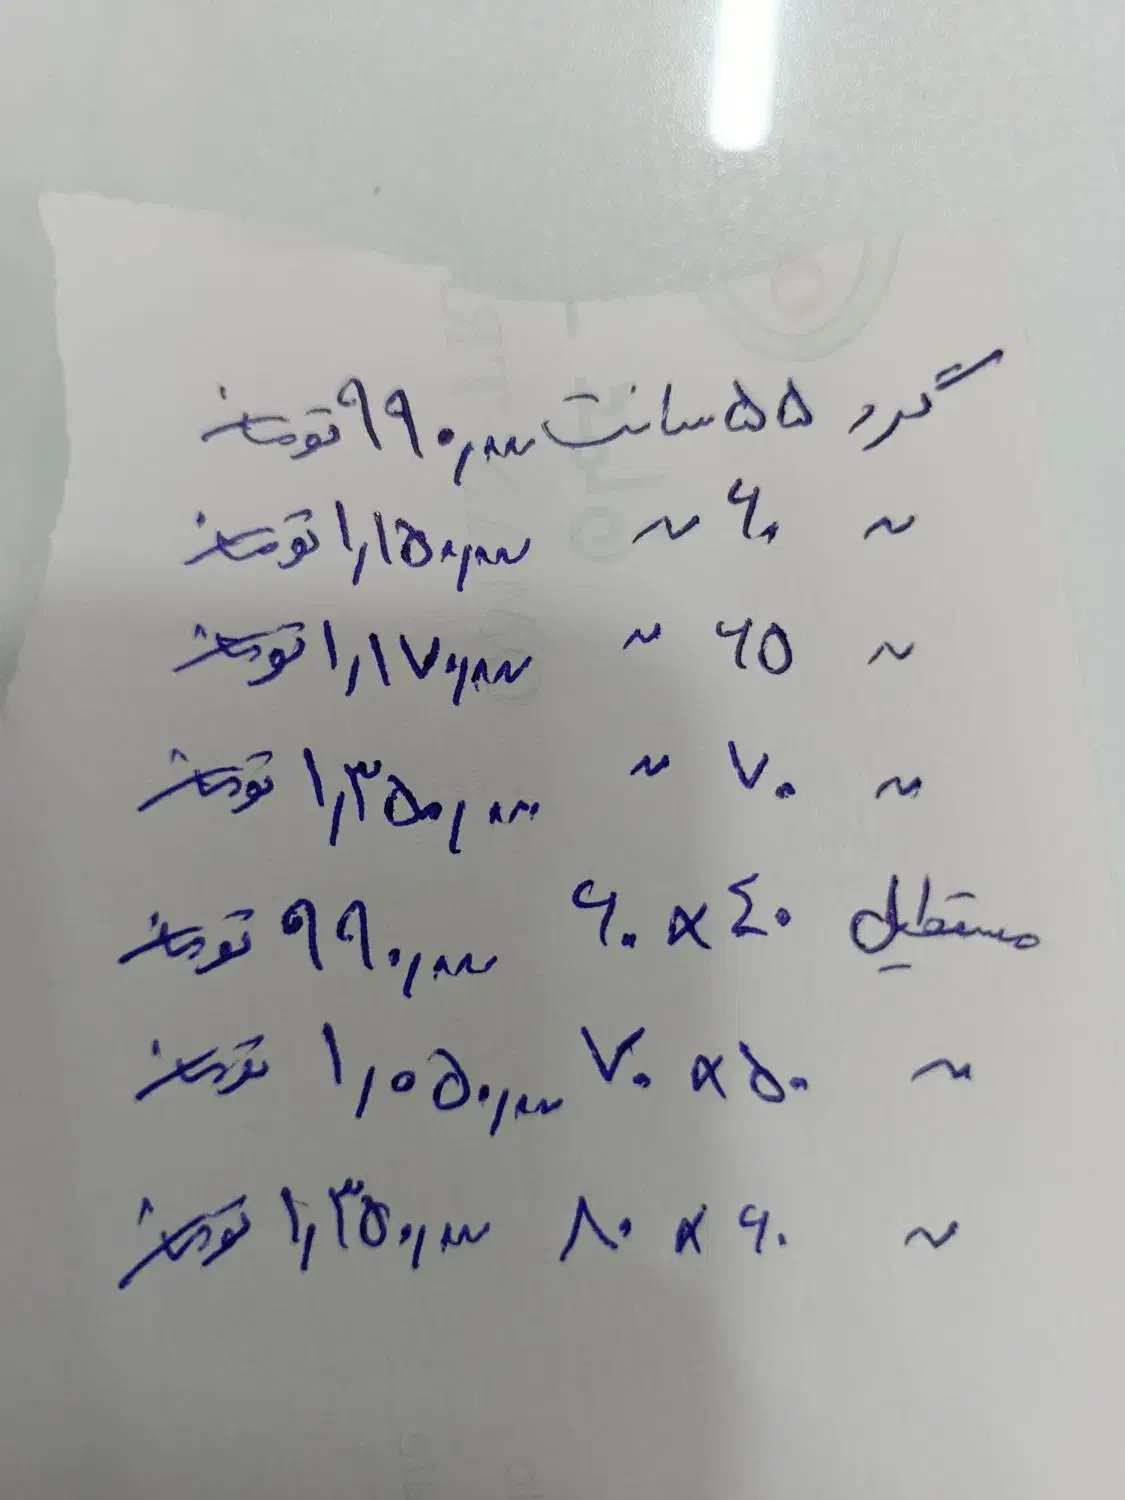 گرد ۵۵ سانت ۹۹۰,۰۰۰ تومان
~ ۶۰ ~ ۱,۱۵۰,۰۰۰ تومان
~ ۶۵ ~ ۱,۱۷۰,۰۰۰ تومان
~ ۷۰ ~ ۱,۳۵۰,۰۰۰ تومان
مستطیل ۴۰ × ۶۰ ۹۹۰,۰۰۰ تومان
~ ۵۰ × ۷۰ ۱,۰۵۰,۰۰۰ تومان
~ ۶۰ × ۸۰ ۱,۳۵۰,۰۰۰ تومان